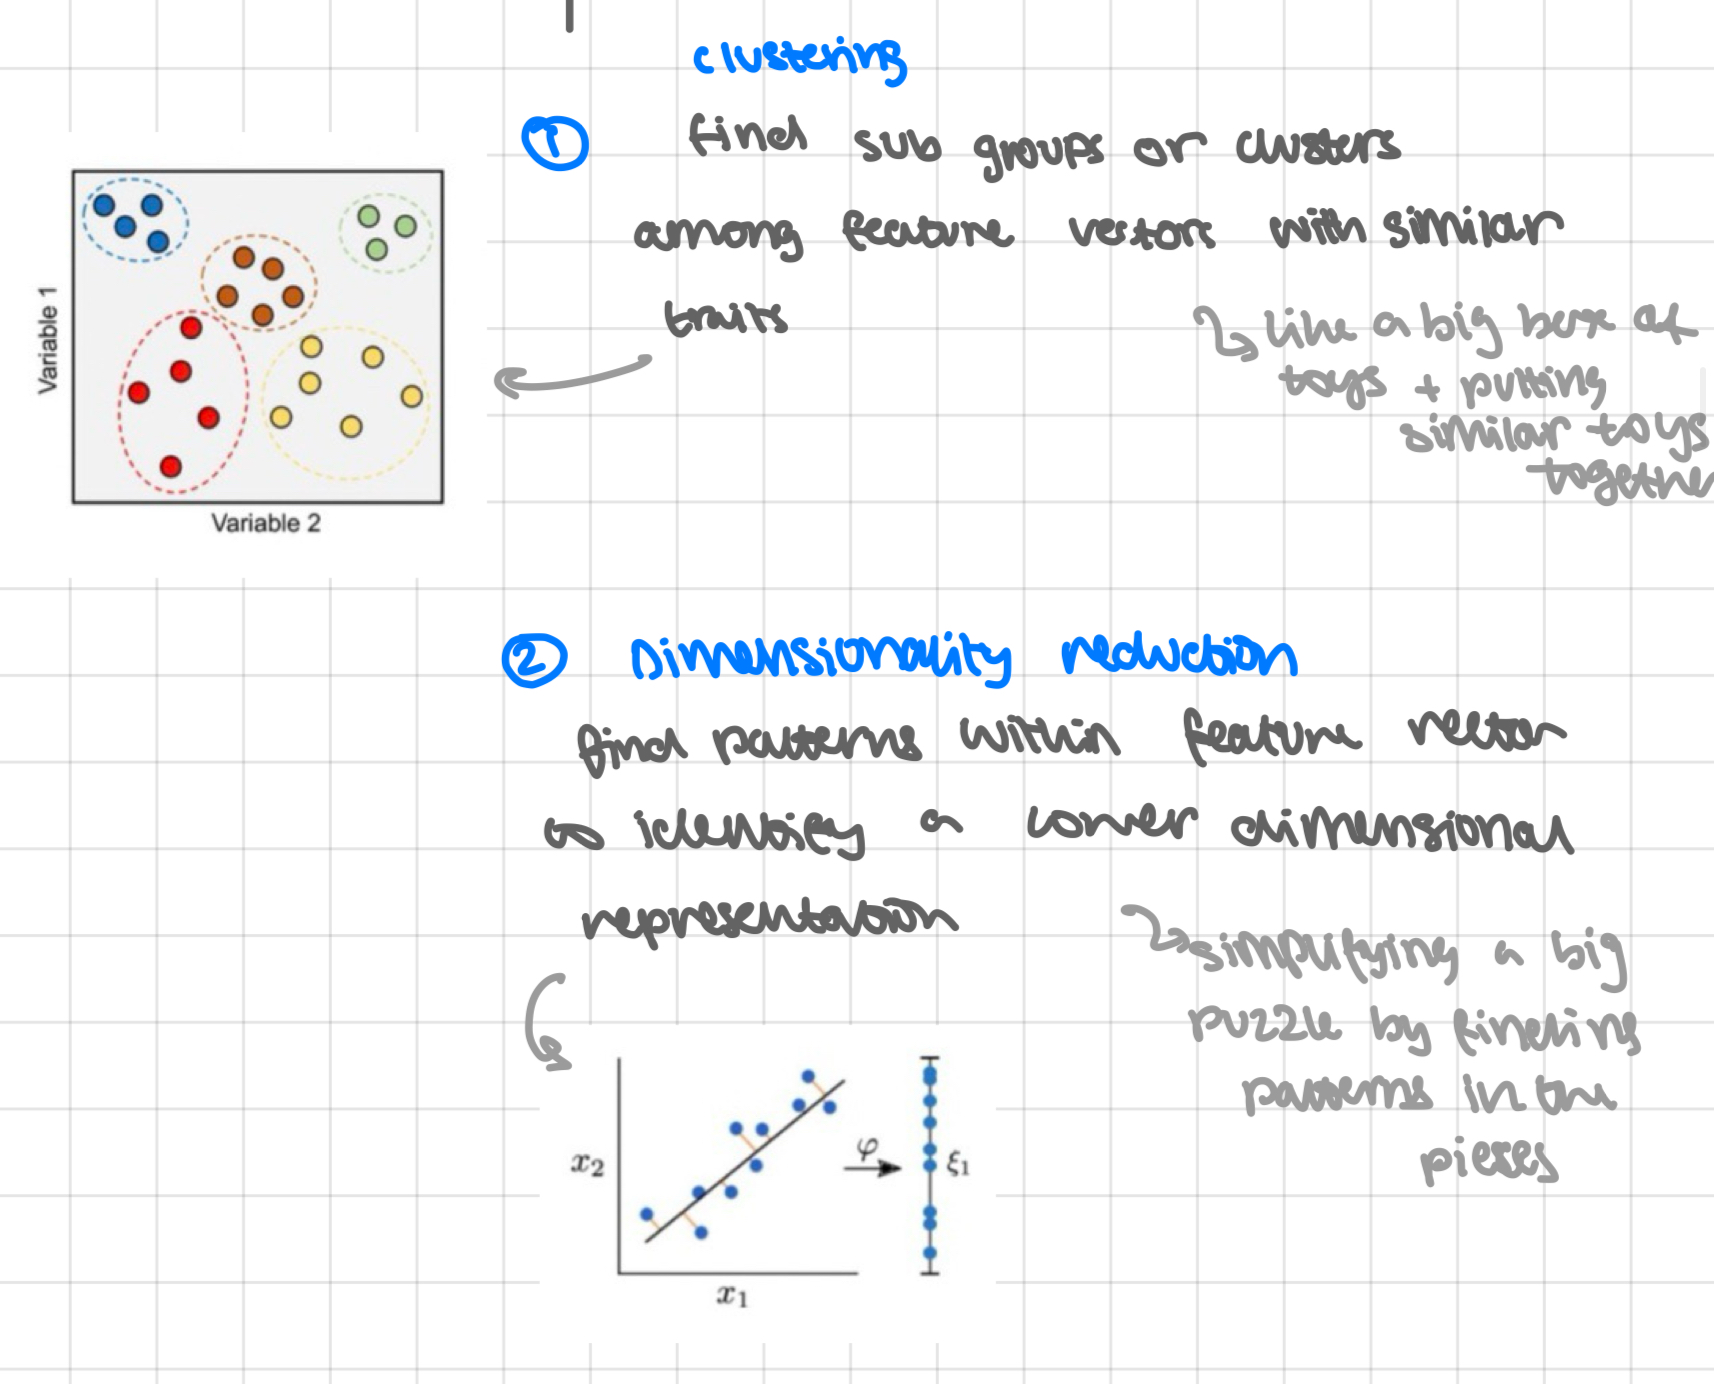 clustering
① find sub groups or clusters
among feature vectors with similar
traits
like a big box of
toys + putting
similar toys
together
Variable 1
Variable 2
② Dimensionality reduction
find patterns within feature vector
to identify a lower dimensional
representation
simplifying a big
puzzle by finding
patterns in the
pieces
x₂
φ
ξ₁
x₁